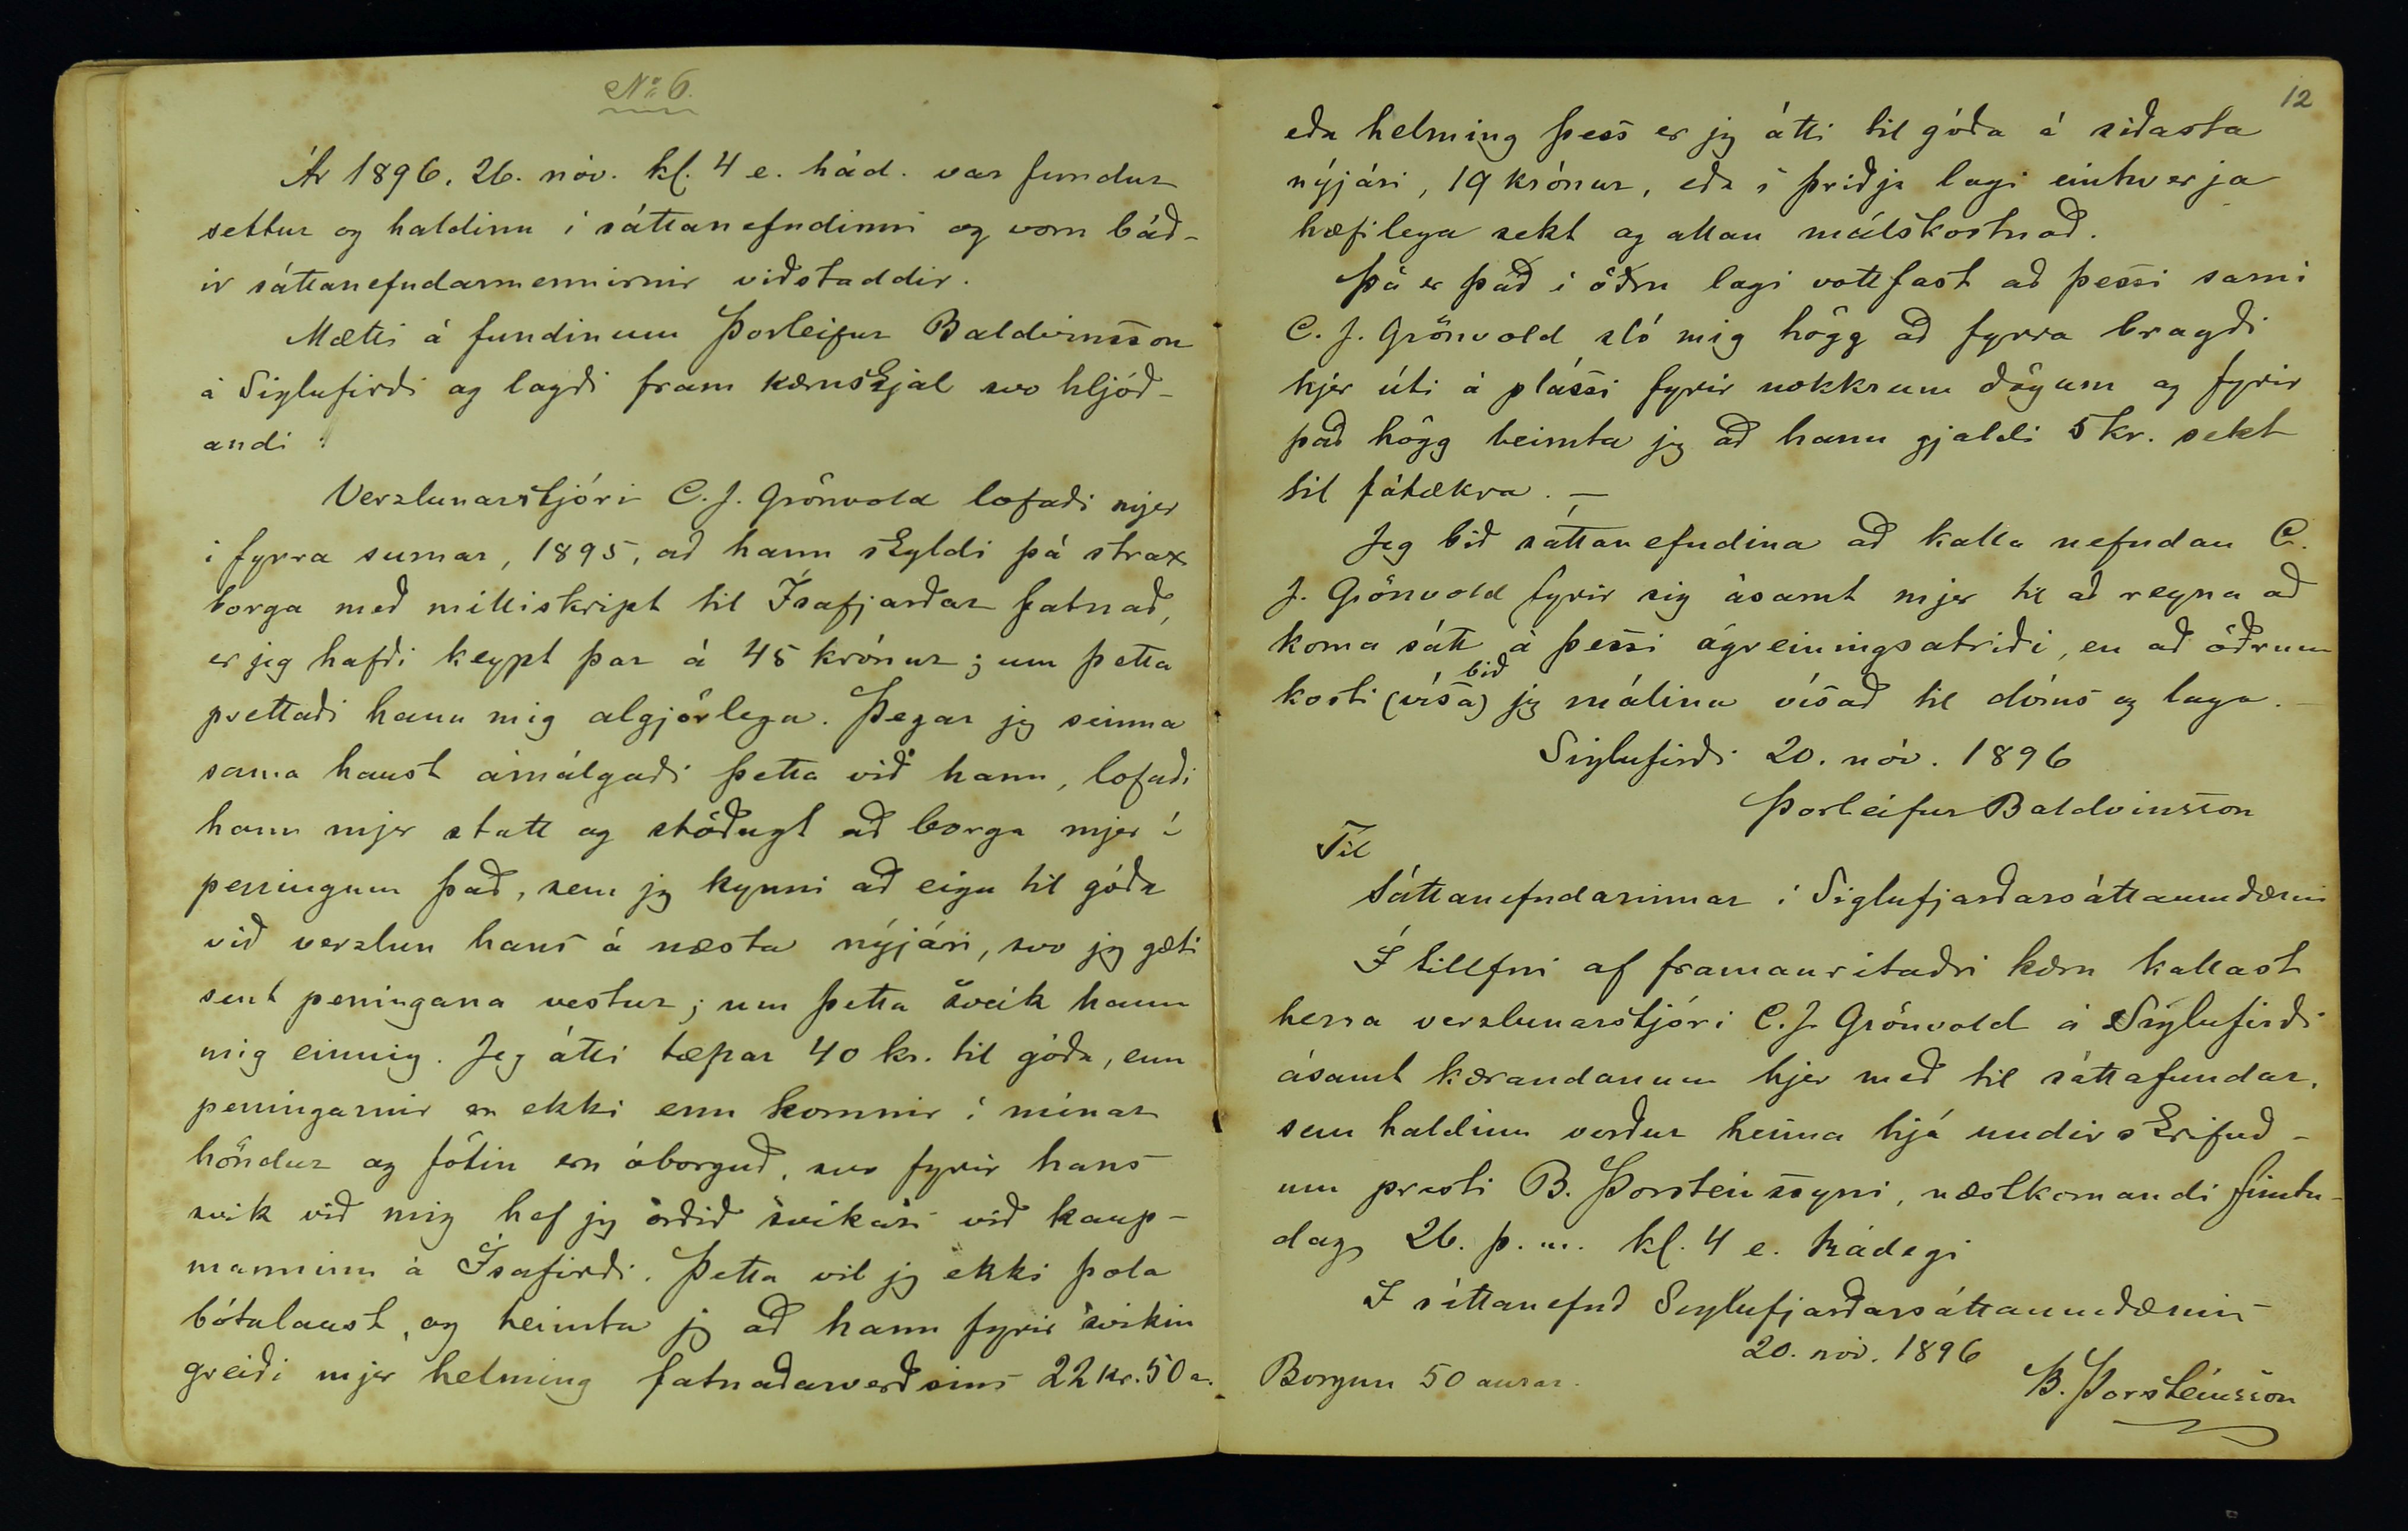 No 6.
Ár 1896, 26. nóv. kl. 4 e. hád. var fundur
settur og haldinn í sáttanefndinni og voru báð-
ir sáttanefndarmennirnir viðstaddir.
Mætti á fundinum Þorleifur Baldvinsson
á Siglufirði og lagði fram kæruskjal svo hljóð-
andi:
Verzlunarstjóri C. J. Grönvold lofaði mjer
í fyrra sumar, 1895, að hann skyldi þá strax
borga með milliskript til Ísafjarðar fatnað,
er jeg hafði keypt þar á 45 krónur; um þetta
prettaði hann mig algjörlega. Þegar jeg seinna
sama haust ámálgaði þetta við hann, lofaði
hann mjer statt og stöðugt að borga mjer í
peningum það, sem jeg kynni að eiga til góða
við verzlun hans á næsta nýjári, svo jeg gæti
sent peningana vestur; um þetta sveik hann
mig einnig. Jeg átti tæpar 40 kr. til góða, enn
peningarnir eru ekki enn komnir í mínar
höndur og fötin eru óborguð, svo fyrir hans
svik við mig hef jeg orðið svikari við kaup-
manninn á Ísafirði. Þetta vil jeg ekki þola
bótalaust, og heimta jeg að hann fyrir svikin
greiði mjer helming fatnaðarverðsins 22 kr. 50 a.
12
eða helming þess er jeg átti til góða á síðasta
nýjári, 19 krónur, eða í þriðja lagi einhverja
hæfilega sekt og allan málskostnað.
Þá er það í öðru lagi vottfast að þessi sami
C. J. Grönvold sló mig högg að fyrra bragði
hjer úti á plássi fyrir nokkrum dögum og fyrir
það högg heimta jeg að hann gjaldi 5 kr. sekt
til fátækra. —
Jeg bið sáttanefndina að kalla nefndan C.
J. Grönvold fyrir sig ásamt mjer til að reyna að
koma sátt á þessi ágreiningsatriði, en að öðrum
kosti (vísa) bið jeg málinu vísað til dóms og laga. -
Siglufirði 20. nóv. 1896
Þorleifur Baldvinsson
Til
Sáttanefndarinnar í Siglufjarðarsáttaumdæmi
Í tilefni af framanritaðri kæru kallast
herra verzlunarstjóri C. J. Grönvold á Siglufirði
ásamt kærandanum hjer með til sáttafundar,
sem haldinn verður heima hjá undirskrifuð-
um presti B. Þorsteinssyni, næstkomandi fimtu-
dag, 26. þ. m. kl. 4 e. hádegi
Í sáttanefnd Siglufjarðarsáttaumdæmis
20. nóv. 1896
Borgun 50 aurar.
B. Þorsteinsson